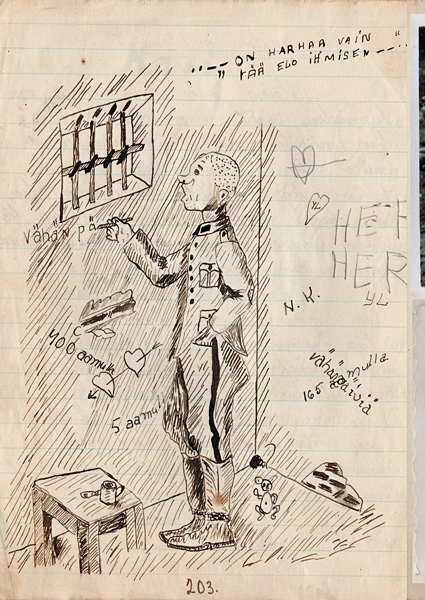 "—— ON HARHAA VAIN
TÄÄ ELO IHMISEN ——"
Vähän pä
HEF
HER
YL
N. K.
400 aamulla
5 aamul
vähän
mulla
165
päiviä
203.